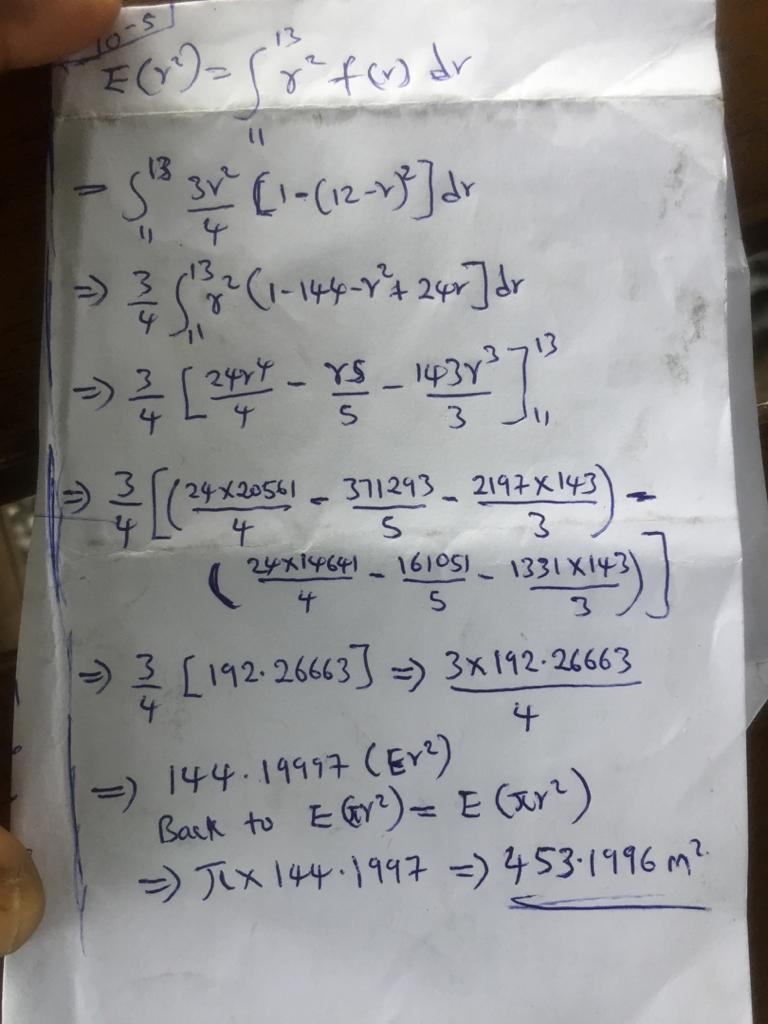 10-5
E(r²) = ∫₁₁¹³ r² f(r) dr
= ∫₁₁¹³ 3r²/4 [1-(12-r)²] dr
⇒ 3/4 ∫₁₁¹³ r² (1-144-r²+24r] dr
⇒ 3/4 [24r4/4 - r5/5 - 143r³/3]₁₁¹³
⇒ 3/4 [(24×20561/4 - 371293/5 - 2197×143/3) -
(24×14641/4 - 161051/5 - 1331×143/3)]
⇒ 3/4 [192.26663] ⇒ 3×192.26663/4
⇒ 144.19997 (Er²)
Back to E(πr²) = E(πr²)
⇒ π×144.1997 ⇒ 453.1996 m²